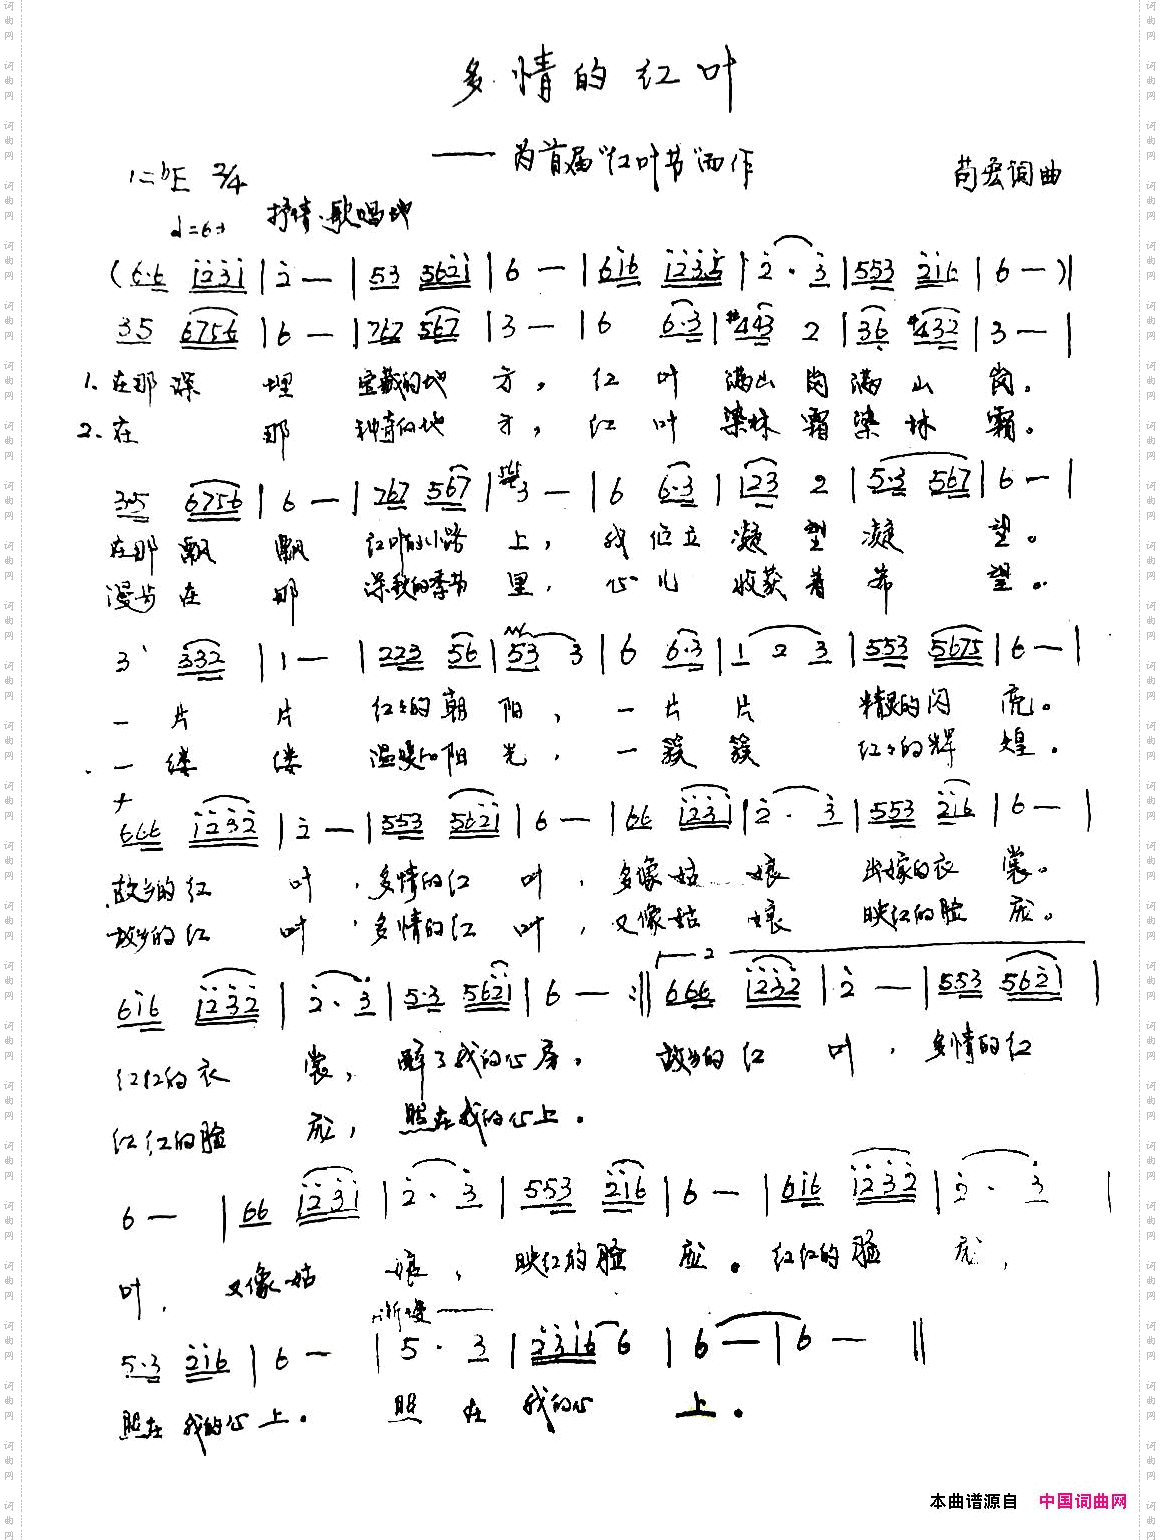 多情的红叶
——为首届“红叶节”而作
1=ᵇE 2/4
苟宏词曲
♩=63 抒情.歌唱地
(6·6 i̇2̇3̇i̇ | 2̇ — | 53 562̇i̇ | 6 — | 6i̇6 i̇2̇3̇5̇ | 2̇ · 3̇ | 553 2̇i̇6 | 6 — )‖
35 6756 | 6 — | 767 567 | 3 — | 6 6·3 | #443 2 | 36 #432 | 3 — |
1. 在那深 埋 宝藏的地 方, 红 叶 满山 岗满 山 岗。
2. 在 那 神奇的地 方, 红 叶 染林 霜染 林 霜。
3·5 6756 | 6 — | 767 567 | 3 — | 6 6·3 | 123 2 | 5·3 567 | 6 — |
在那飘 飘 红叶的小路 上, 我 伫立 凝 望 凝 望。
漫步在 那 深秋的季节 里, 心 儿 收获着 希 望。
3 332 | 1 — | 223 56 | 53 3 | 6 6·3 | 1 2 3 | 553 5675 | 6 — |
一 片 片 红红的朝 阳, 一 片 片 精灵的闪 亮。
一 缕 缕 温暖的阳 光, 一 簇 簇 红红的辉 煌。
666 i̇2̇3̇2̇ | 2̇ — | 553 562̇i̇ | 6 — | 66 i̇2̇3̇i̇ | 2̇ · 3̇ | 553 2̇i̇6 | 6 — |
故乡的红 叶, 多情的红 叶, 多像姑 娘 出嫁的衣 裳。
故乡的红 叶, 多情的红 叶, 又像姑 娘 映红的脸 庞。
6i̇6 i̇2̇3̇2̇ | 2̇ · 3̇ | 5·3 562̇i̇ | 6 — :‖ 2 666 i̇2̇3̇2̇ | 2̇ — | 553 562̇i̇ |
红红的衣 裳, 醉了我的心房。 故乡的红 叶, 多情的红
红红的脸 庞, 照在我的心上。
6 — | 66 i̇2̇3̇i̇ | 2̇ · 3̇ | 553 2̇i̇6 | 6 — | 6i̇6 i̇2̇3̇2̇ | 2̇ · 3̇ |
叶, 又像姑 娘, 映红的脸 庞。 红红的脸 庞,
渐慢——
5·3 2̇i̇6 | 6 — | 5 · 3 | 2̇3̇i̇6 6 | 6 — | 6 — ‖
照在我的心上。 照 在 我的心 上。
本曲谱源自 中国词曲网